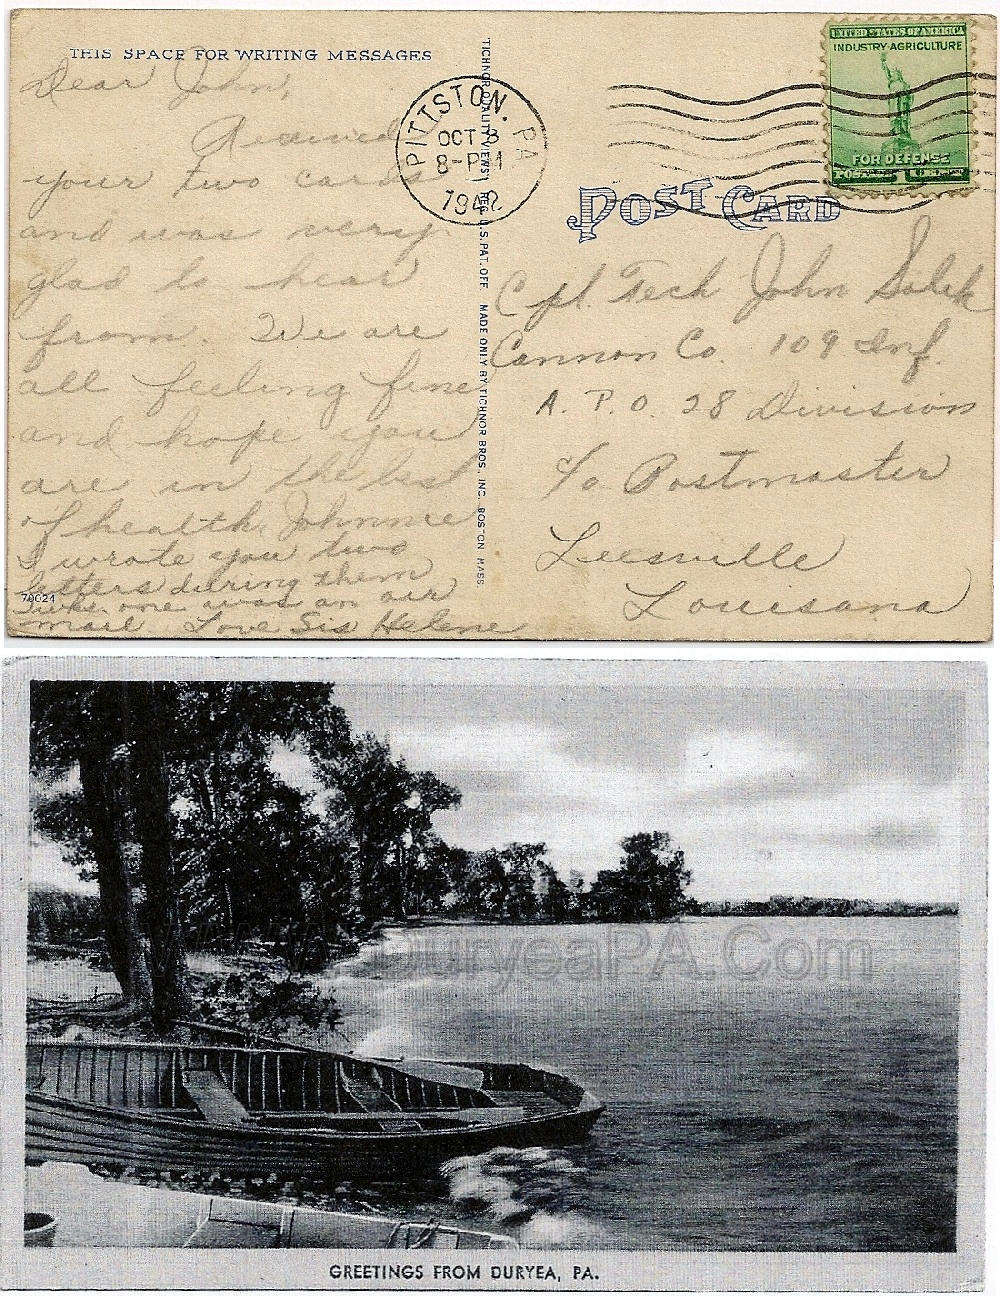 THIS SPACE FOR WRITING MESSAGES
Dear John,
Received
your two cards
and was very
glad to hear
from. We are
all feeling fine
and hope you
are in the best
of health. Johnnie
I wrote you two
letters during them
one was an air
mail Love Sis Helene
70024
TICHNOR QUALITY VIEWS REG. U.S. PAT. OFF. MADE ONLY BY TICHNOR BROS. INC. BOSTON MASS.
PITTSTON, PA
OCT 8
8-PM
1942
UNITED STATES OF AMERICA
INDUSTRY AGRICULTURE
FOR DEFENSE
POSTAGE 1 CENT
POST CARD
Cpl. Tech John Solek
Cannon Co. 109 Inf.
A. P. O. 28 Division
c/o Postmaster
Leesville
Louisana
www.DuryeaPA.Com
GREETINGS FROM DURYEA, PA.